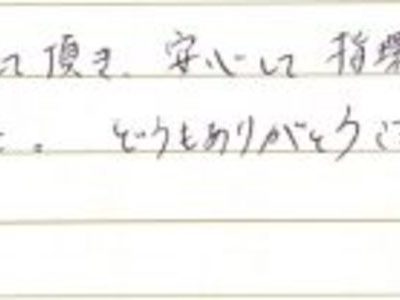 て頂き、安心して指環
た。どうもありがとうご